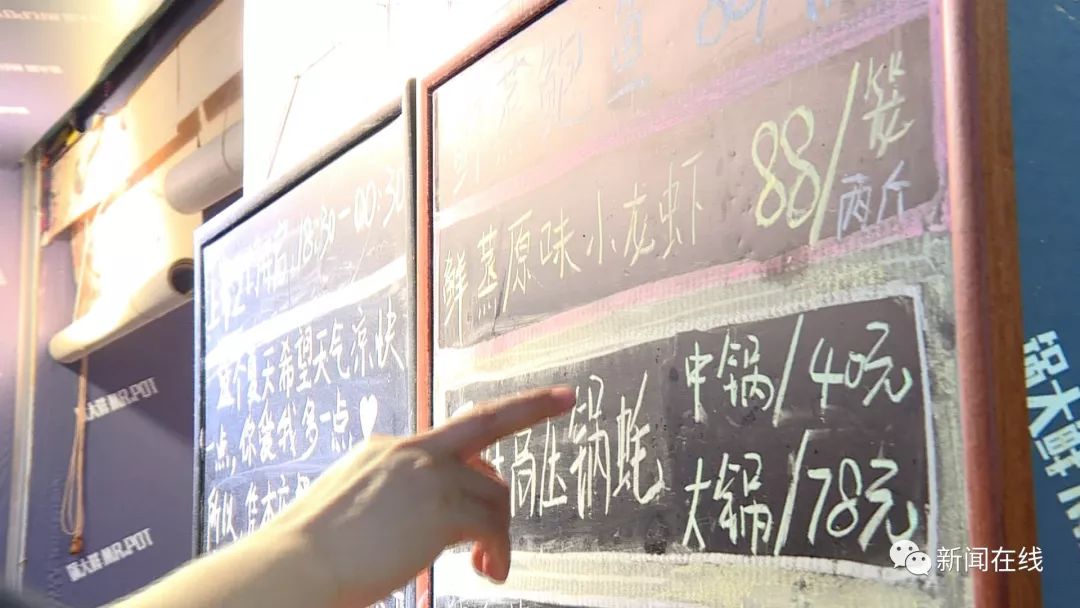 18:30-00:30
这个夏天希望天气凉快
一点,你爱我多一点♥
所以,
鲜蒸鲍鱼
鲜蒸原味小龙虾 88/笼
两斤
高压锅蚝
中锅/40元
大锅/78元
锅大鲜 MR.POT
锅大鲜 MR.POT
锅大鲜
新闻在线